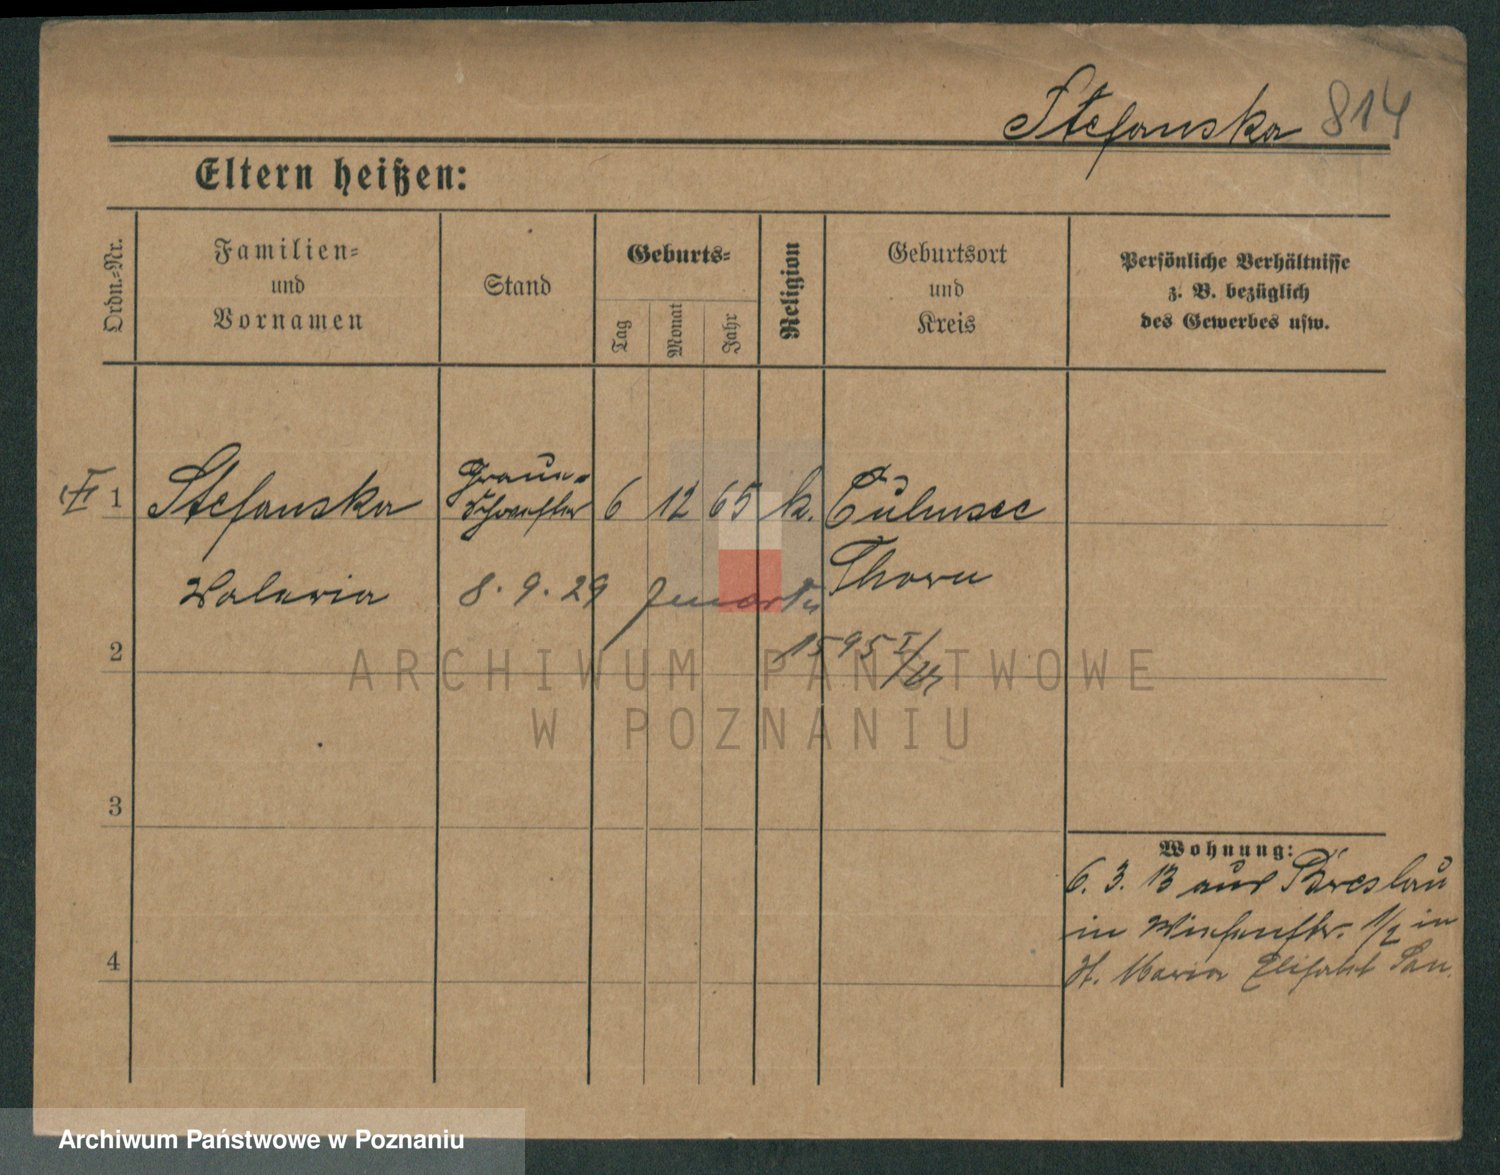 Stefanska 814
Eltern heißen:
Ordn.-Nr.
Familien-
und
Vornamen
Stand
Geburts-
Tag
Monat
Jahr
Religion
Geburtsort
und
Kreis
Persönliche Verhältnisse
z. B. bezüglich
des Gewerbes usw.
1 Stefanska
Graue-
Schwester
6 12 65 k. Culmsee
Valeria 8. 9. 29 zmarła Thorn
2
1595
3
4
Wohnung:
6. 3. 13 aus Breslau
in Wiesenstr. 1/2 in
St. Maria Elisabet
ARCHIWUM PAŃSTWOWE
W POZNANIU
Archiwum Państwowe w Poznaniu